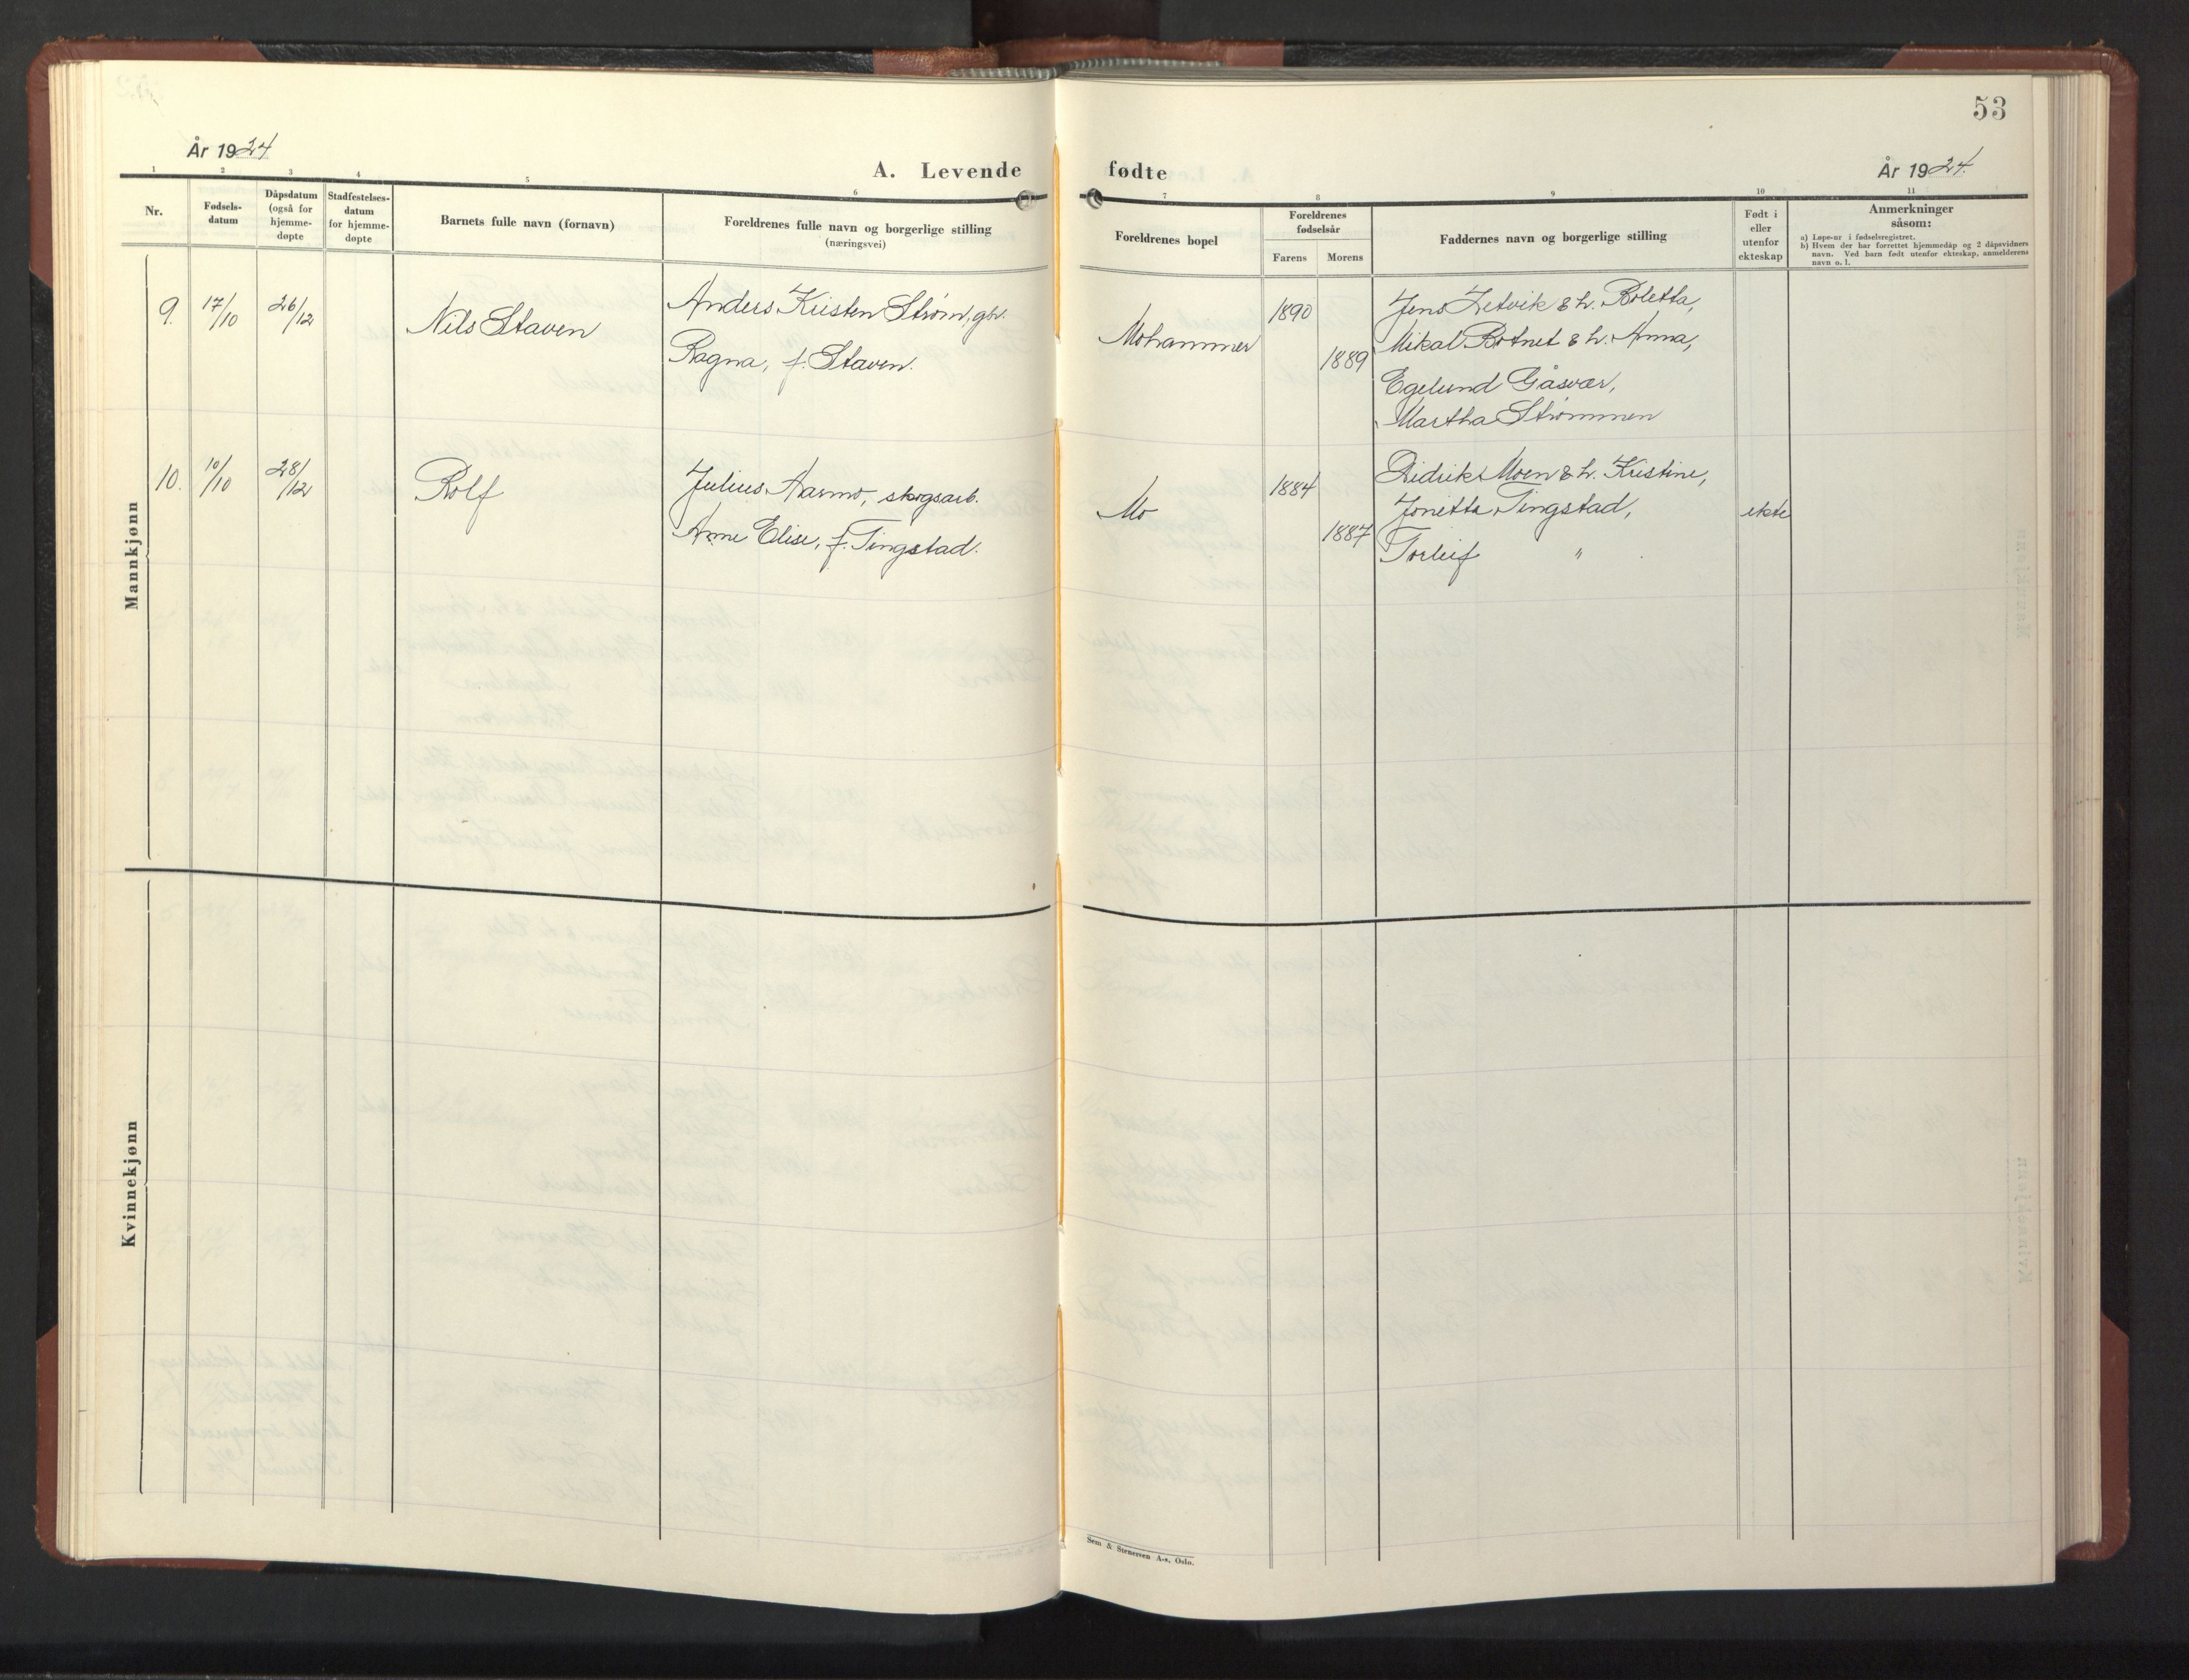 53
År 1924
A. Levende fødte
År 1924.
1 2 3 4 5 6 7 8 9 10 11
Nr.
Fødsels-
datum
Dåpsdatum
(også for
hjemme-
døpte
Stadfestelses-
datum
for hjemme-
døpte
Barnets fulle navn (fornavn)
Foreldrenes fulle navn og borgerlige stilling
(næringsvei)
Foreldrenes bopel
Foreldrenes
fødselsår
Farens Morens
Faddernes navn og borgerlige stilling
Født i
eller
utenfor
ekteskap
Anmerkninger
såsom:
a) Løpe-nr i fødselsregistret.
b) Hvem der har forrettet hjemmedåp og 2 dåpsvidners
navn. Ved barn født utenfor ekteskap, anmelderens
navn o. l.
Mannkjønn
9. 17/10 26/12
Nils Staven
Anders Kristen Strøm, gbr.
Ragna, f. Staven.
Mohammer
1890
1889
Jens Zetvik & h. Roletta,
Mikal Botnet & h. Anna,
Egelund Gåsvær,
Martha Strømmen
10. 10/10 28/12
Rolf
Julius Aarmo, skogsarb.
Anne Elise, f. Tingstad.
Mo
1884
1887
Didrik Moen & h. Kristine,
Jonetta Tingstad,
Torleif "
ekte
Kvinnekjønn
Sem & Stenersen A-s, Oslo.